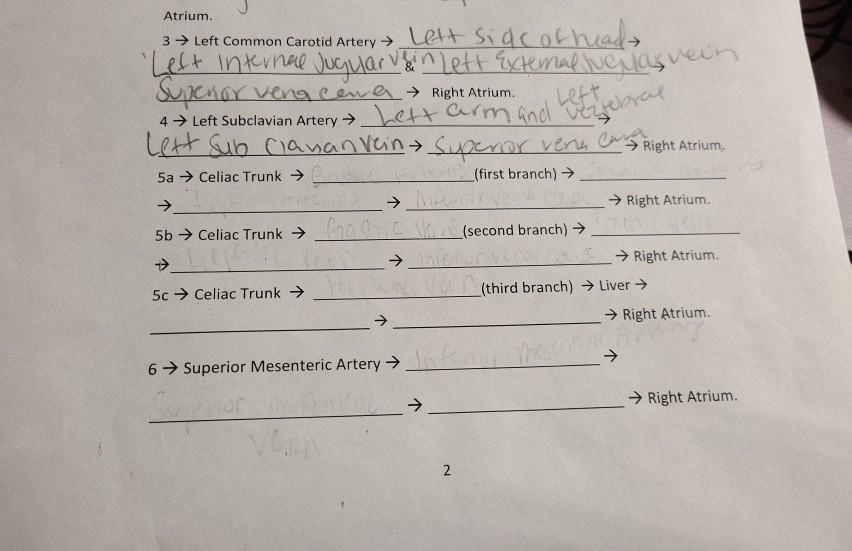 Atrium.
3 → Left Common Carotid Artery → Left side of head →
Left Internal Juguar Vein & Left External Jugular vein →
Superior vena cava → Right Atrium.
4 → Left Subclavian Artery → Left arm and Left vertebrae →
Left Sub Clavian Vein → Superior vena cava → Right Atrium.
5a → Celiac Trunk → Gastric (first branch) →
→ → Inferior vena cava → Right Atrium.
5b → Celiac Trunk → Gastric Vein (second branch) →
→ Hepatic Vein → Inferior vena cava → Right Atrium.
5c → Celiac Trunk → Hepatic Vein (third branch) → Liver →
→ → Right Atrium.
6 → Superior Mesenteric Artery → Inferior Artery →
Superior → → Right Atrium.
Vein
2